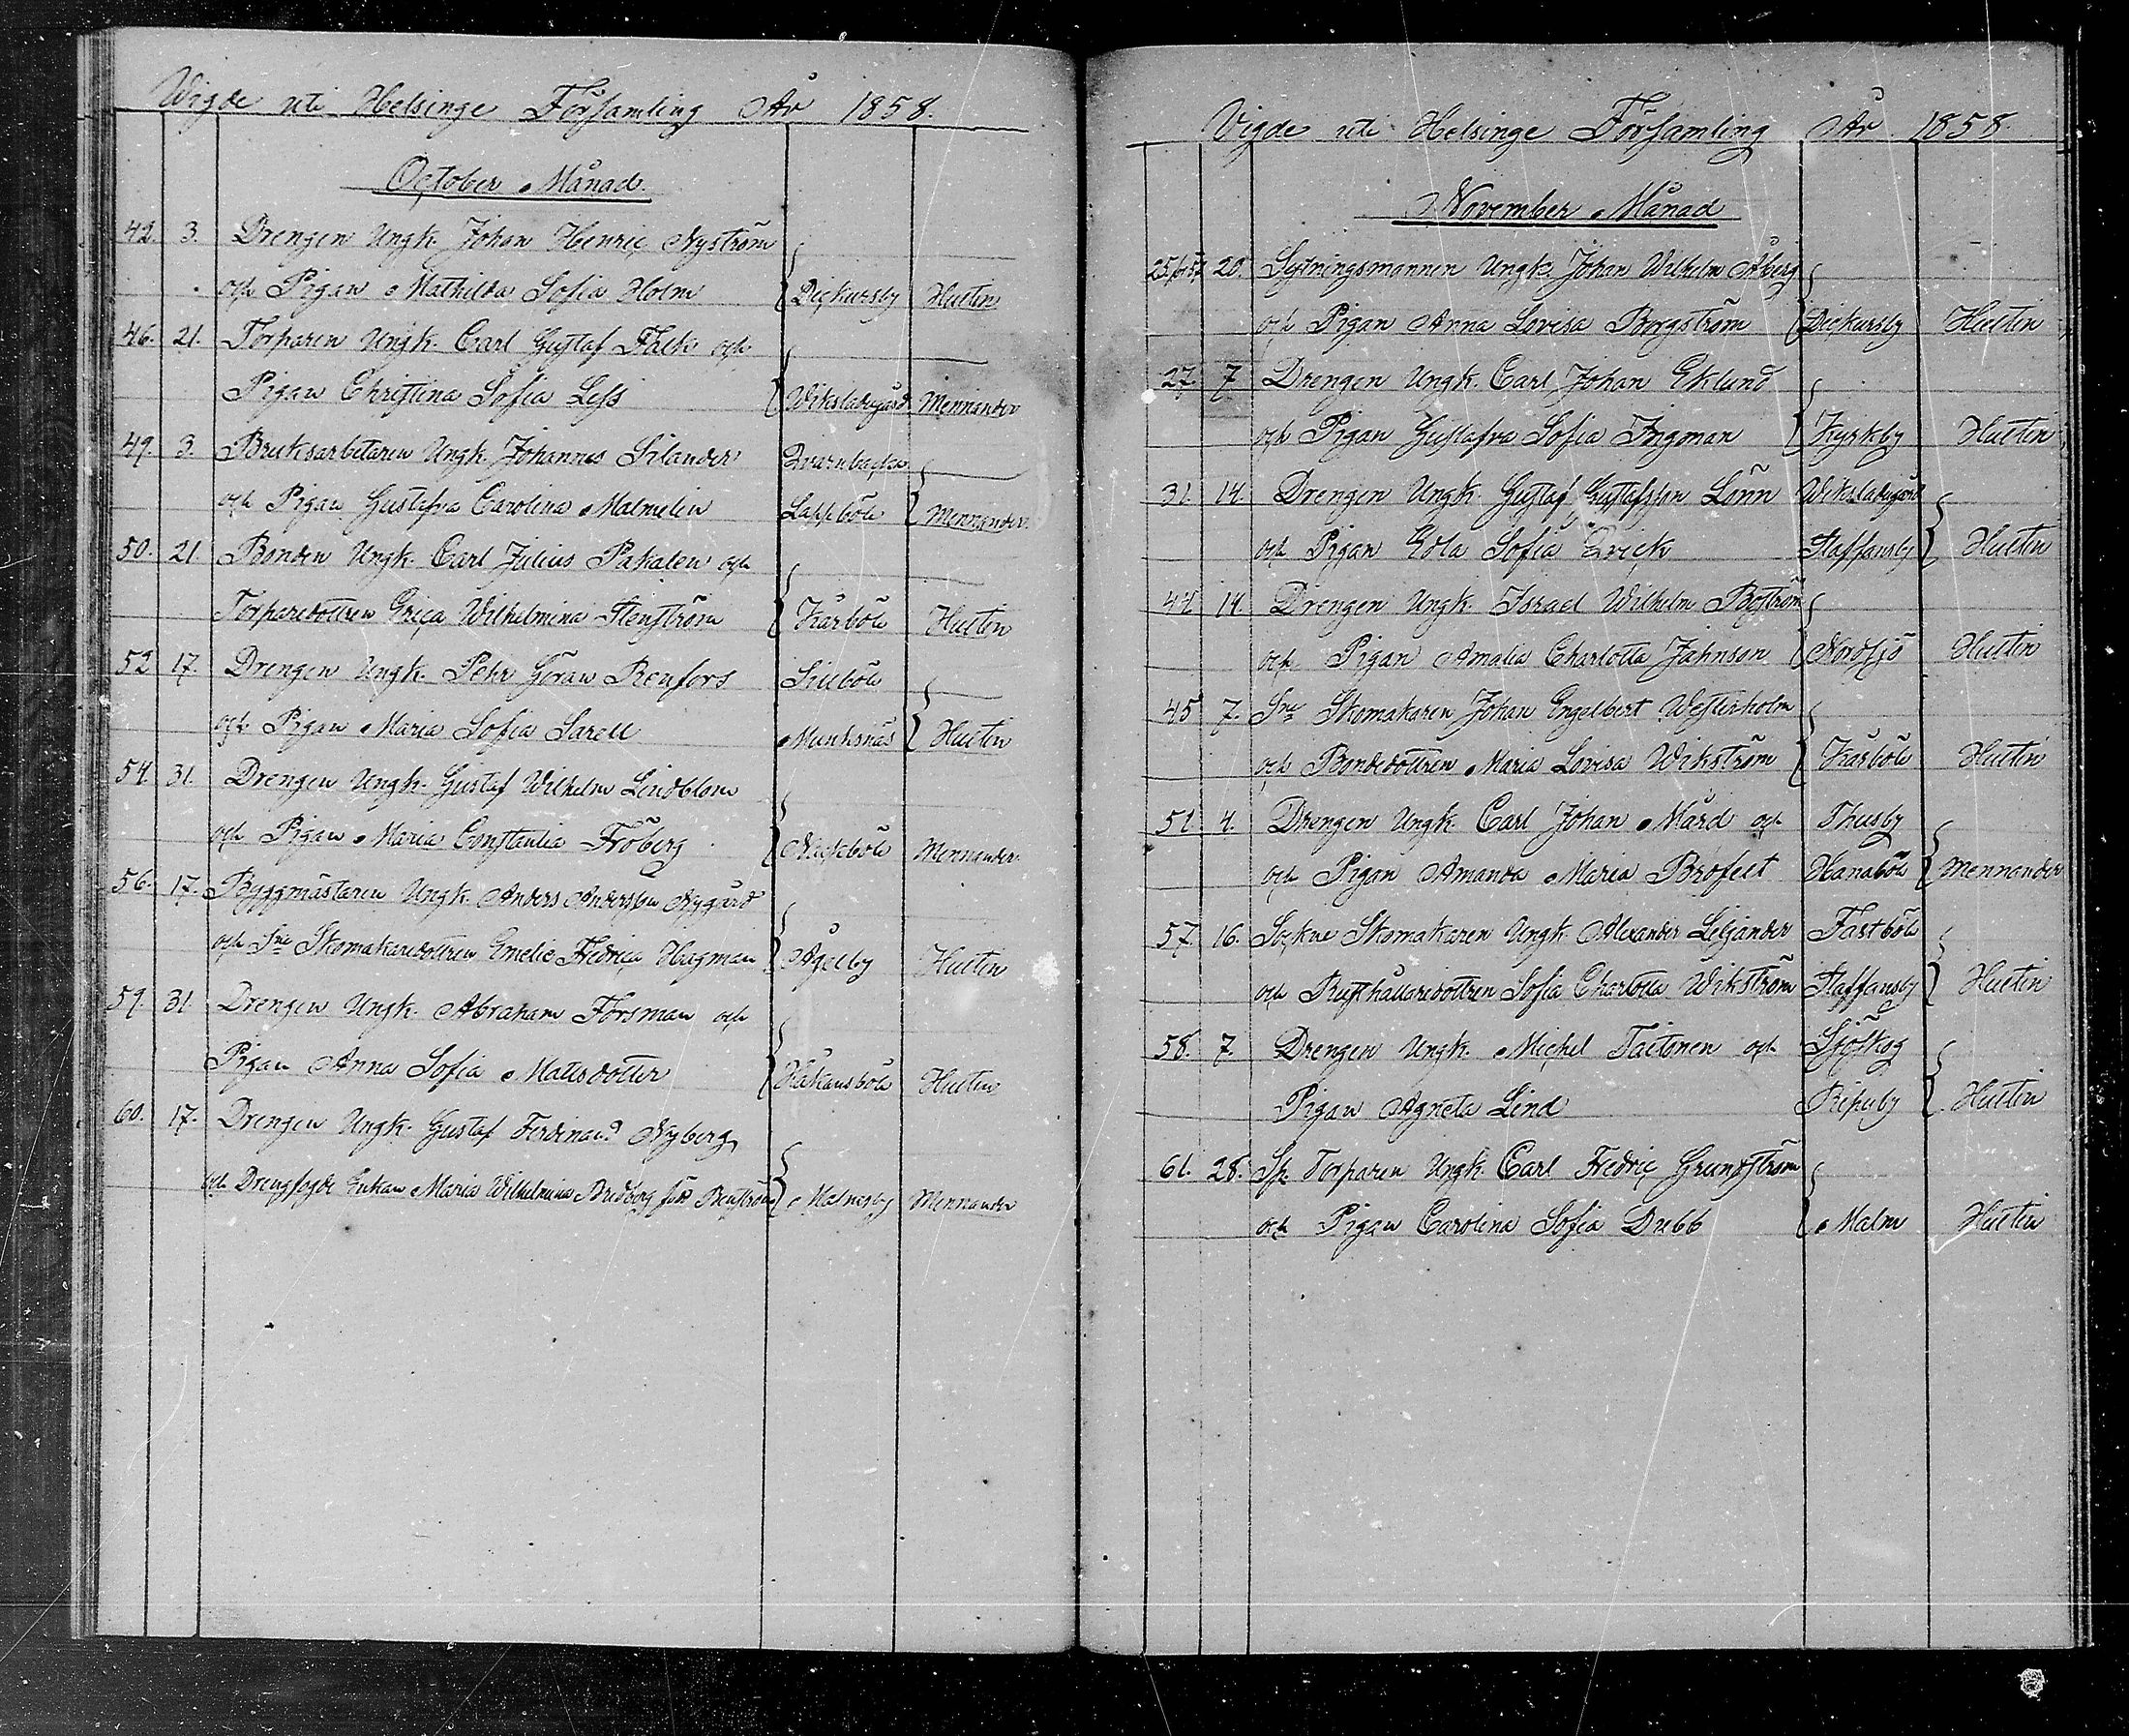 Wigde uti Helsinge Församling År 1858.
October Månad.
42. 3. Drengen Ungk. Johan Henric Nyström
och Pigan Mathilda Sofia Holm Dickursby Hultin
46. 21. Torparen Ungk. Carl Gustaf Falk och
Pigan Christina Sofia Less Wiksladugård Mennander
49. 3. Bruksarbetaren Ungk. Johannes Silander Qvarnbacka
och Pigan Gustafva Carolina Malmelin Lappböle Mennander
50. 21. Bonden Ungk. Carl Julius Pakalen och
Torparedottren Erica Wilhelmina Stenström Kårböle Hultin
52 17. Drengen Ungk. Pehr Göran Renfors Siliböle
och Pigan Maria Sofia Sarell Munksnäs Hultin
54. 31. Drengen Ungk. Gustaf Wilhelm Lindblom
och Pigan Maria Constantia Fröberg Nackböle Mennander
56. 17. Byggmästaren Ungk. Anders Andersson Nygård
och Sne Skomakaredottren Emelie Fredrica Hagman Ågelby Hultin
59. 31 Drengen Ungk. Abraham Forsman och
Pigan Anna Sofia Matsdotter Håkansböle Hultin
60. 17. Drengen Ungk. Gustaf Ferdinand Nyberg
och Drengfogde Enkan Maria Wilhelmina Bredberg född Bergström Malmsby Mennander
Vigde uti Helsinge Församling År 1858.
November Månad
20. Sytningsmannen Ungk. Johan Wilhelm Åberg
och Pigan Anna Lovisa Borgström Dickursby Hultin
27. 7 Drengen Ungk. Carl Johan Eklund
och Pigan Gustafva Sofia Ingman Kyrkby Hultin
31. 14. Drengen Ungk. Gustaf Gustafsson Lönn Wiksladugård
och Pigan Edla Sofia Qvick Staffansby Hultin
44 14. Drengen Ungk. Israel Wilhelm Boström
och Pigan Amalia Charlotta Jahnson Nordsjö Hultin
45 7. Sne Skomakaren Johan Engelbert Westerholm
och Bondedottren Maria Lovisa Wikström Kårböle Hultin
51. 4. Drengen Ungk. Carl Johan Mård och Thusby
och Pigan Amanda Maria Brofelt Hanaböle Mennander
57. 16. Sockne Skomakaren Ungk Alexander Liljander Fastböle
och Rusthållaredottren Sofia Charlotta Wikström Staffansby Hultin
58. 7. Drengen Ungk. Michel Taitonen och Sjöskog
Pigan Agneta Lind Ripuby Hultin
61. 28. Sk. Torparen Ungk. Carl Fredric Grundström
och Pigan Carolina Sofia Dubb Malm Hultin